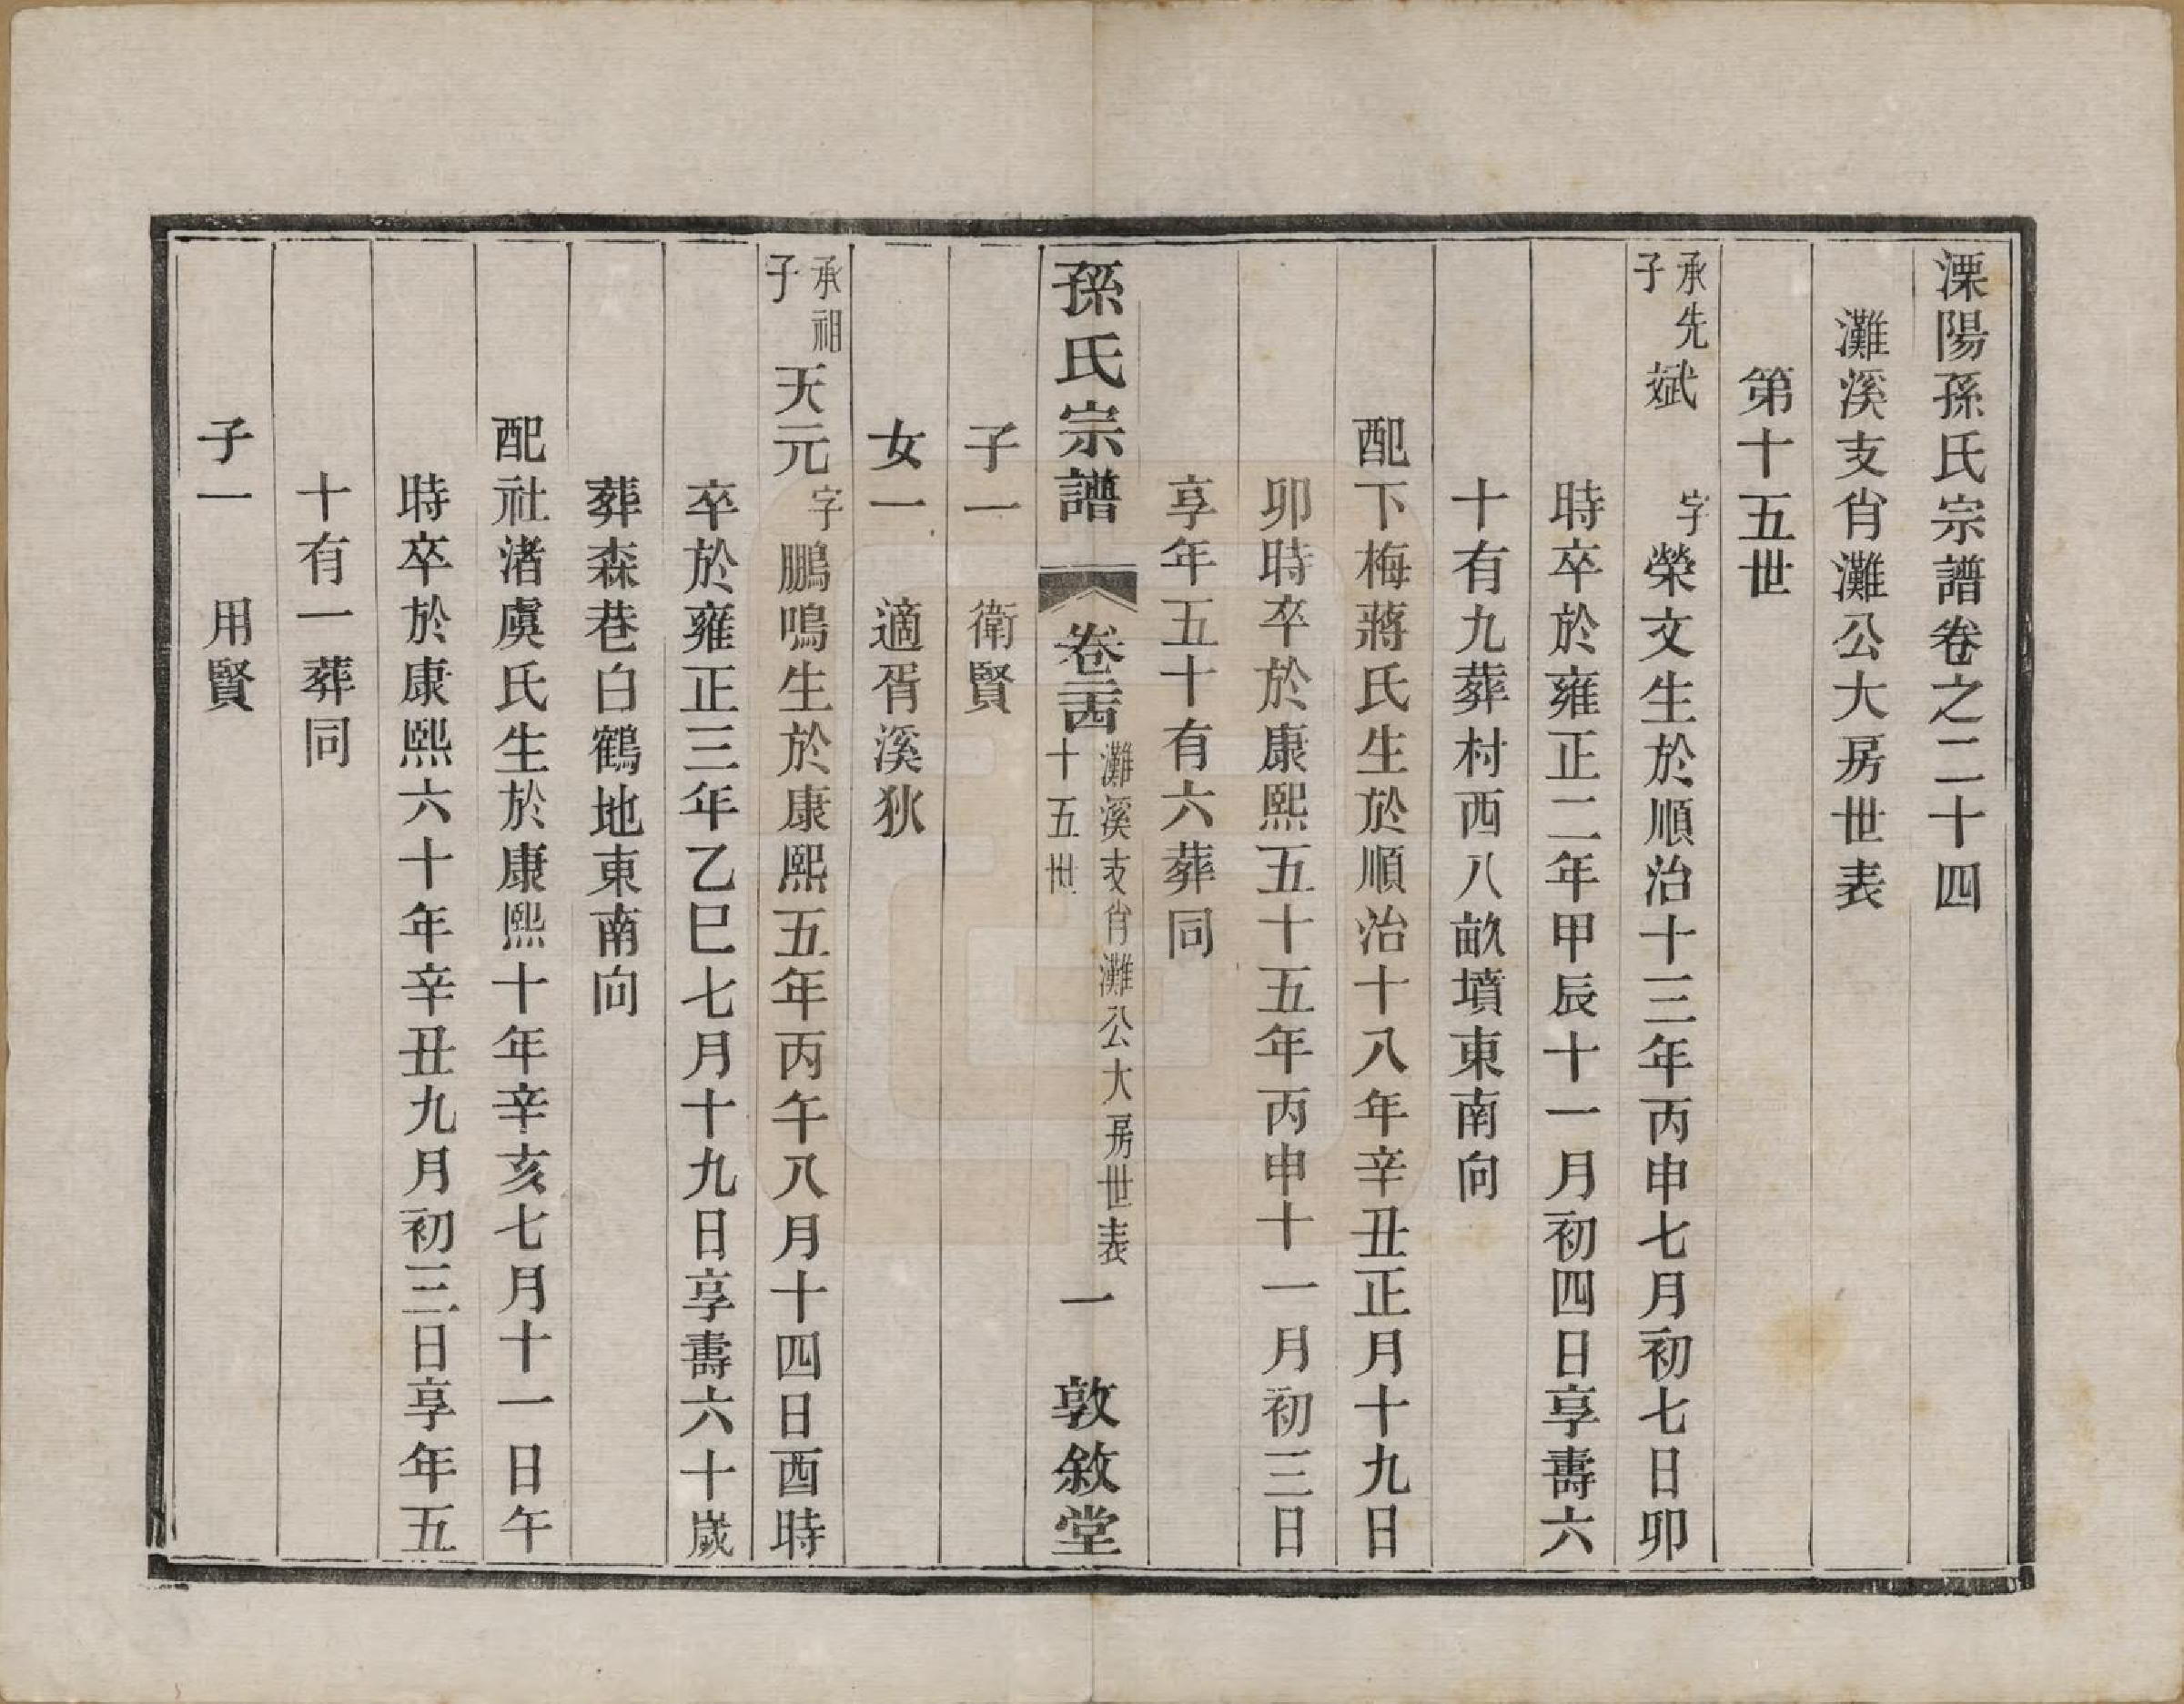 溧陽孫氏宗譜卷之二十四
灘溪支肯灘公大房世表
第十五世
承先子斌 字榮文生於順治十三年丙申七月初七日卯
時卒於雍正二年甲辰十一月初四日享壽六
十有九葬村西八畝墳東南向
配下梅蔣氏生於順治十八年辛丑正月十九日
卯時卒於康熙五十五年丙申十一月初三日
享年五十有六葬同
孫氏宗譜 卷二十四 灘溪支肯灘公大房世表 十五世 一 敦敘堂
子一 衛賢
女一 適胥溪狄
承祖子天元 字鵬鳴生於康熙五年丙午八月十四日酉時
卒於雍正三年乙巳七月十九日享壽六十歲
葬森巷白鶴地東南向
配社渚虞氏生於康熙十年辛亥七月十一日午
時卒於康熙六十年辛丑九月初三日享年五
十有一葬同
子一 用賢